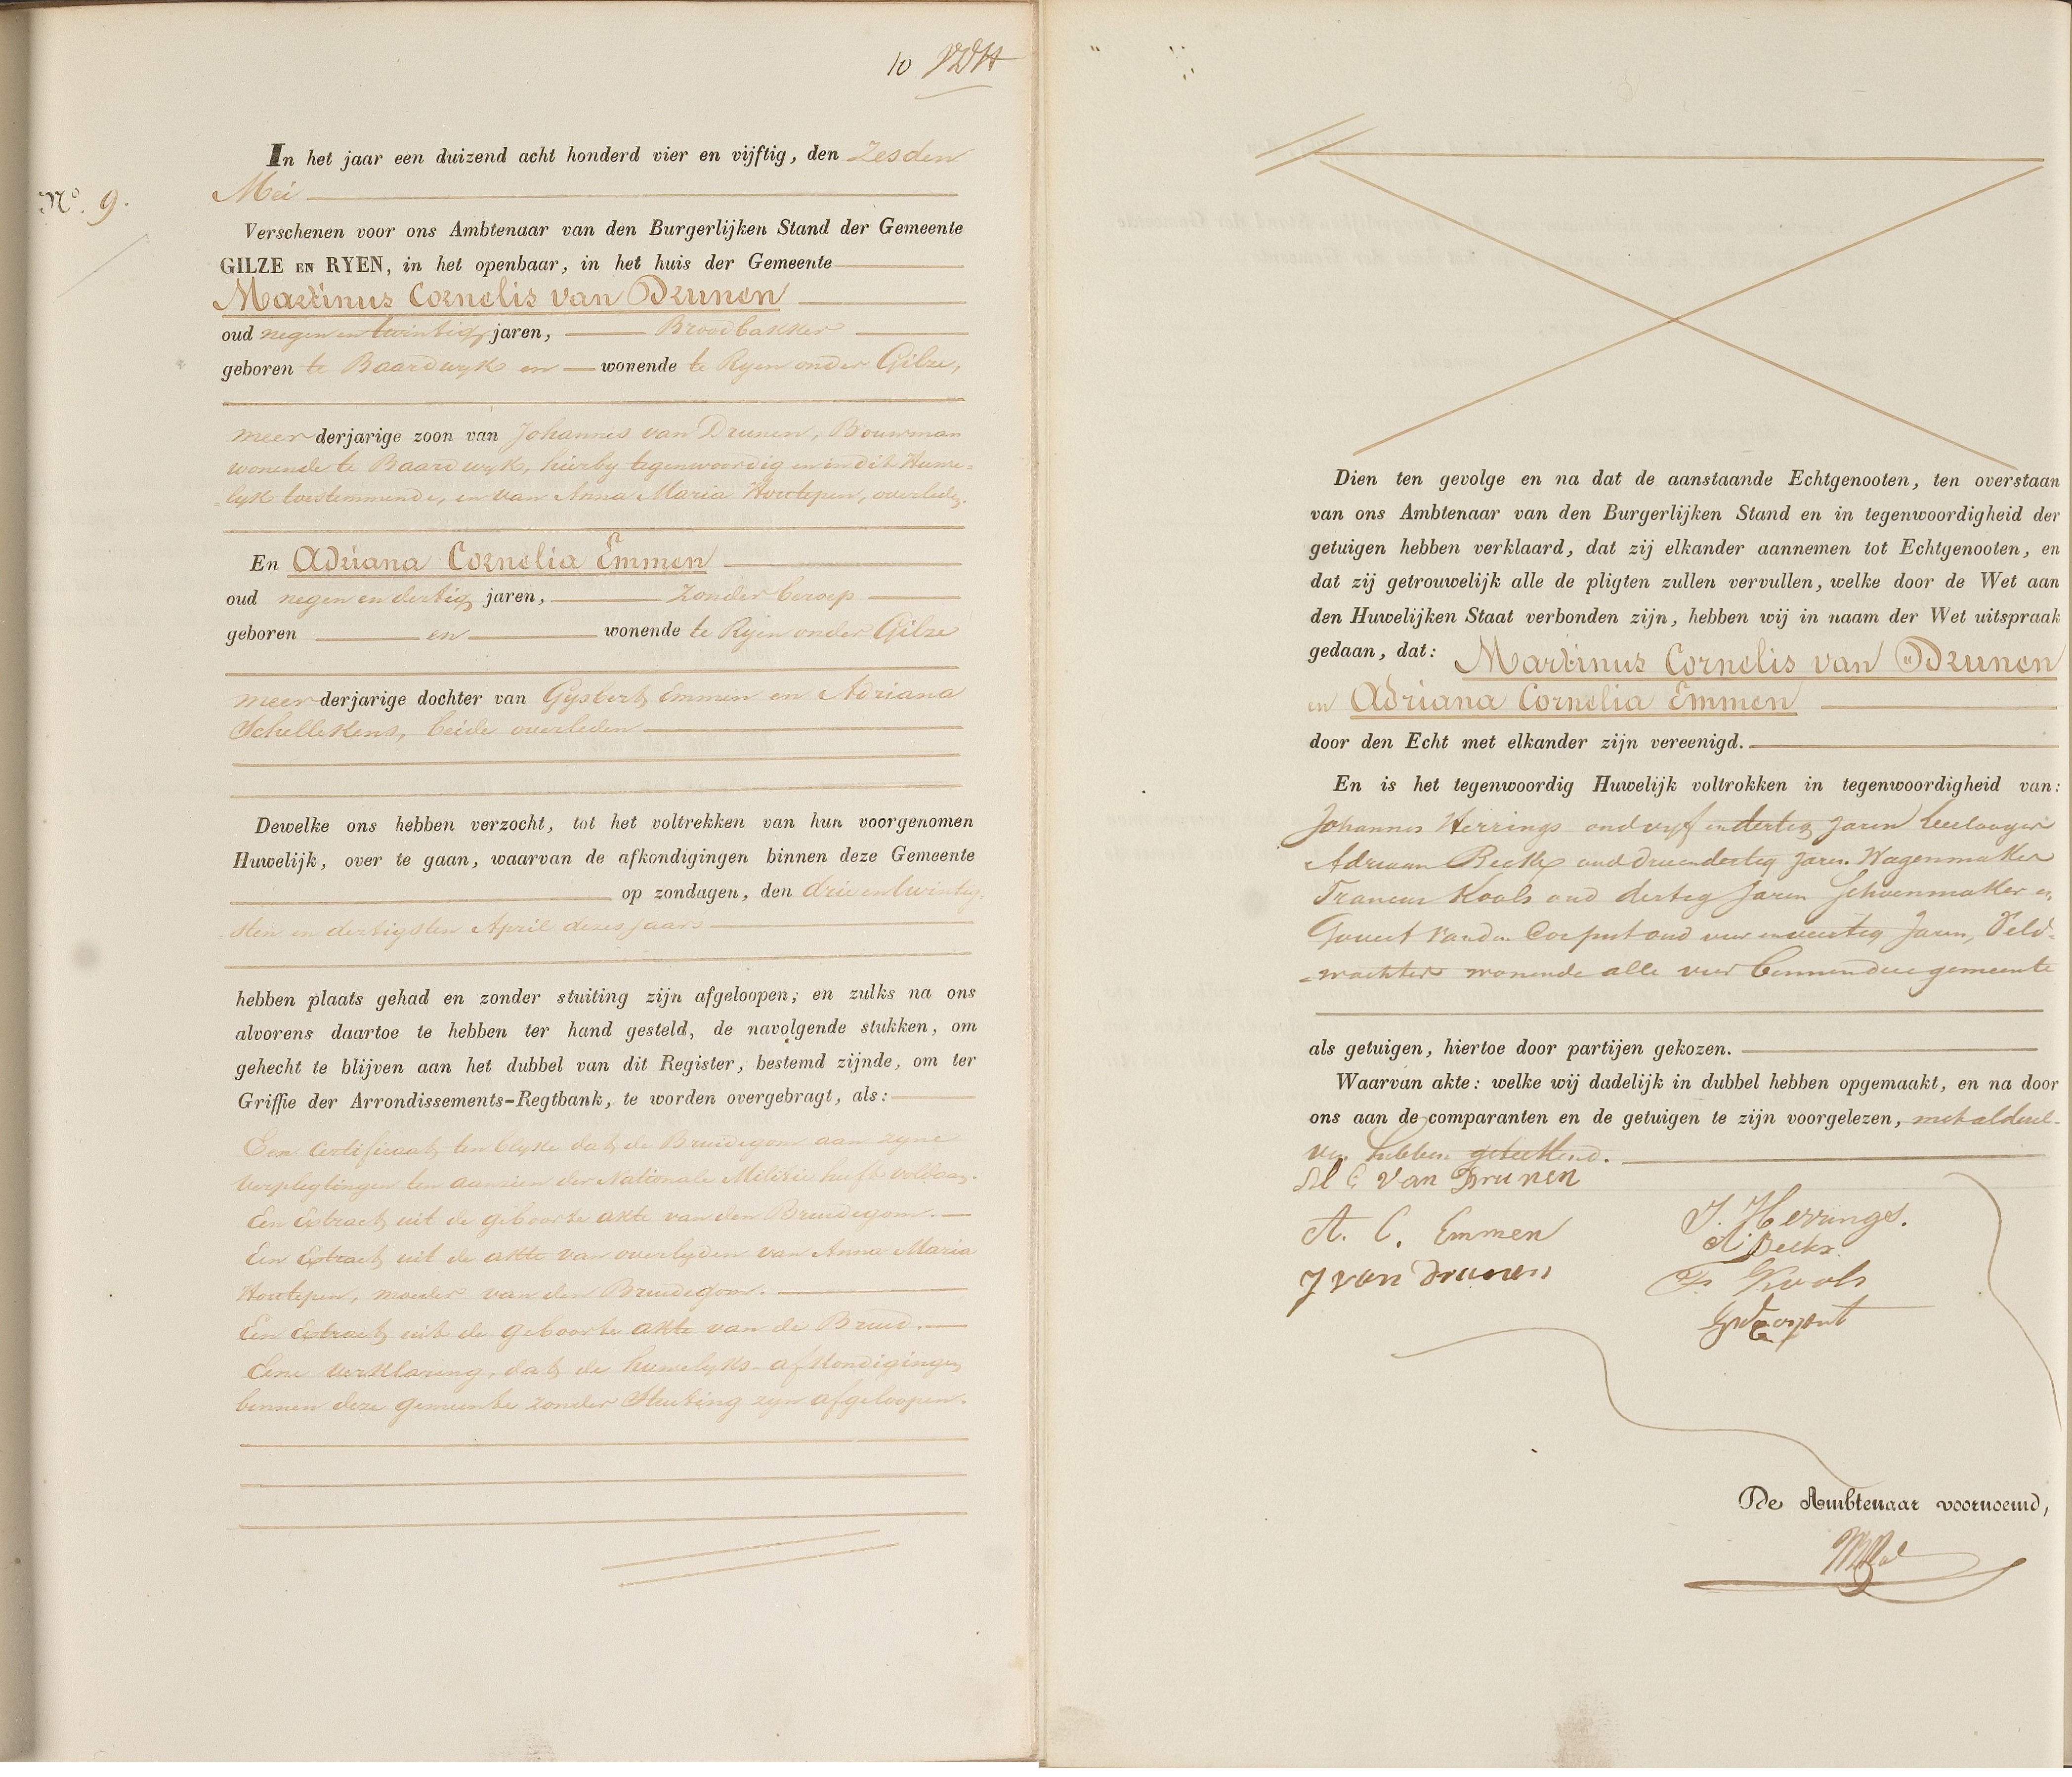 10
No. 9.
In het jaar een duizend acht honderd vier en vijftig, den zesden
Mei
Verschenen voor ons Ambtenaar van den Burgerlijken Stand der Gemeente
GILZE EN RYEN, in het openbaar, in het huis der Gemeente
Martinus Cornelis van Drunen
oud negen en twintig jaren, Broodbakker
geboren te Baardwyk en wonende te Ryen onder Gilze,
meerderjarige zoon van Johannes van Drunen, Bouwman
wonende te Baardwyk, hierby tegenwoordig en in dit Huwe=
=lyk toestemmende, en van Anna Maria Houtepen, overleden.
En Adriana Cornelia Emmen
oud negen en dertig jaren, zonder beroep
geboren en wonende te Ryen onder Gilze
meerderjarige dochter van Gysbert Emmen en Adriana
Schellekens, beide overleden
Dewelke ons hebben verzocht, tot het voltrekken van hun voorgenomen
Huwelijk, over te gaan, waarvan de afkondigingen binnen deze Gemeente
op zondagen, den drie en twintig=
sten en dertigsten April dezes jaars
hebben plaats gehad en zonder stuiting zijn afgeloopen; en zulks na ons
alvorens daartoe te hebben ter hand gesteld, de navolgende stukken, om
gehecht te blijven aan het dubbel van dit Register, bestemd zijnde, om ter
Griffie der Arrondissements-Regtbank, te worden overgebragt, als:
Een Certificaat ten blyke dat de Bruidegom aan zyne
verpligtingen ten aanzien der Nationale Militie heeft voldaan.
Een Extract uit de geboorte akte van den Bruidegom.
Een Extract uit de akte van overlyden van Anna Maria
Houtepen, moeder van den Bruidegom.
Een Extract uit de geboorte akte van de Bruid.
Eene verklaring, dat de huwelyks-afkondigingen
binnen deze gemeente zonder Stuiting zyn afgeloopen.
Dien ten gevolge en na dat de aanstaande Echtgenooten, ten overstaan
van ons Ambtenaar van den Burgerlijken Stand en in tegenwoordigheid der
getuigen hebben verklaard, dat zij elkander aannemen tot Echtgenooten, en
dat zij getrouwelijk alle de pligten zullen vervullen, welke door de Wet aan
den Huwelijken Staat verbonden zijn, hebben wij in naam der Wet uitspraak
gedaan, dat: Martinus Cornelis van Drunen
en Adriana Cornelia Emmen
door den Echt met elkander zijn vereenigd.
En is het tegenwoordig Huwelijk voltrokken in tegenwoordigheid van:
Johannes Herrings oud vyf en dertig Jaren leerlooyer
Adriaan Beckx oud drie en dertig Jaren Wagenmaker
Francus Kools oud dertig Jaren Schoenmaker en
Govert van den Corput oud vier en veertig Jaren, Veld=
=wachter wonende alle vier binnen deze gemeente
als getuigen, hiertoe door partijen gekozen.
Waarvan akte: welke wij dadelijk in dubbel hebben opgemaakt, en na door
ons aan de comparanten en de getuigen te zijn voorgelezen, met aldezel=
ven hebben geteekend.
M C van Drunen
A. C. Emmen
J van Drunen
J. Herringes.
A. Beckx
Fr Kools
GvdCorput
De Ambtenaar voornoemd,